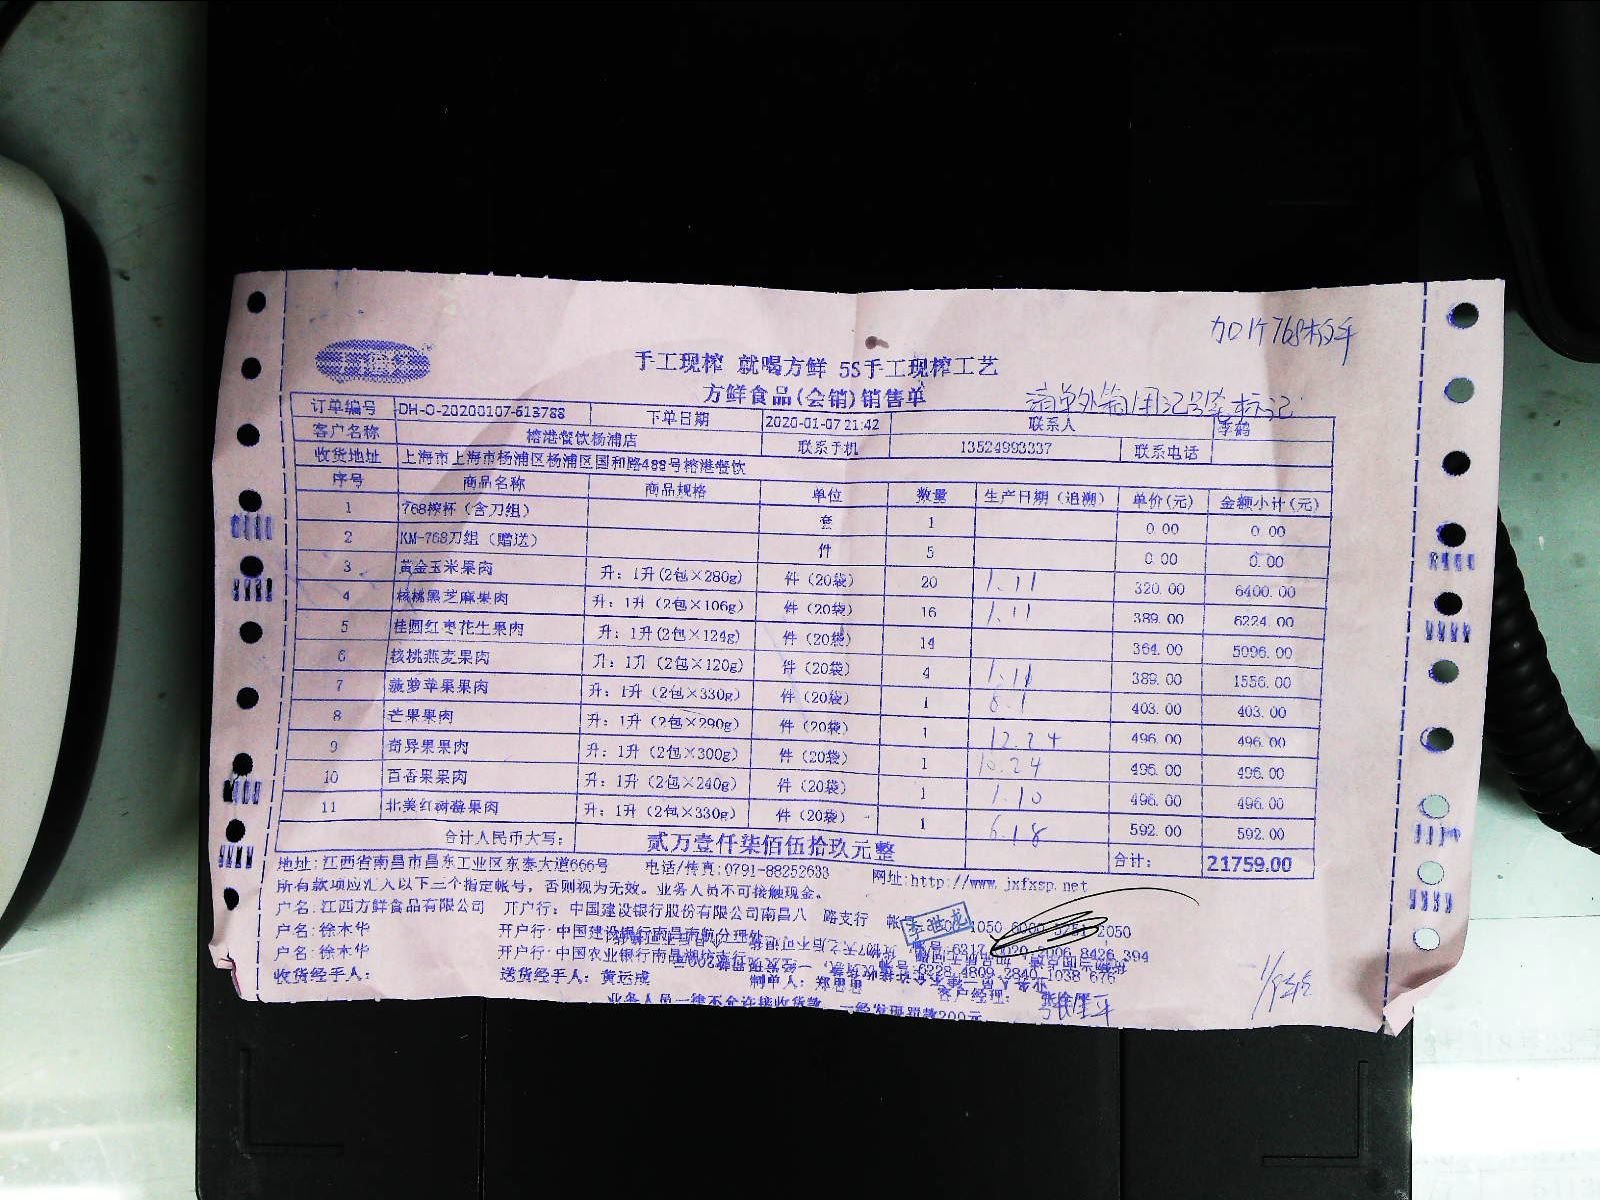 手工现榨 就喝方鲜 5S手工现榨工艺
方鲜食品(会销)销售单
清单外箱用记号笔标记
订单编号 DH-O-20200107-613788 下单日期 2020-01-07 21:42 联系人 李鹤
客户名称 榕港餐饮杨浦店 联系手机 13524993337 联系电话
收货地址 上海市上海市杨浦区杨浦区国和路488号榕港餐饮
序号 商品名称 商品规格 单位 数量 生产日期（追溯） 单价(元) 金额小计(元)
1 768榨杯（含刀组） 套 1 0.00 0.00
2 KM-768刀组（赠送） 件 5 0.00 0.00
3 黄金玉米果肉 升：1升(2包×280g) 件（20袋） 20 1.11 320.00 6400.00
4 核桃黑芝麻果肉 升：1升（2包×106g） 件（20袋） 16 1.11 389.00 6224.00
5 桂圆红枣花生果肉 升：1升(2包×124g) 件（20袋） 14 364.00 5096.00
6 核桃燕麦果肉 升：1升（2包×120g） 件（20袋） 4 1.11 389.00 1556.00
7 菠萝苹果果肉 升：1升（2包×330g） 件（20袋） 1 8.1 403.00 403.00
8 芒果果肉 升：1升（2包×290g） 件（20袋） 1 12.24 496.00 496.00
9 奇异果果肉 升：1升（2包×300g） 件（20袋） 1 10.24 496.00 496.00
10 百香果果肉 升：1升（2包×240g） 件（20袋） 1 1.10 496.00 496.00
11 北美红树莓果肉 升：1升（2包×330g） 件（20袋） 1 6.18 592.00 592.00
合计人民币大写： 贰万壹仟柒佰伍拾玖元整 合计： 21759.00
地址:江西省南昌市昌东工业区东泰大道666号 电话/传真:0791-88252633 网址:http://www.jxfxsp.net
所有款项应汇入以下三个指定帐号，否则视为无效。业务人员不可接触现金。
户名:江西方鲜食品有限公司 开户行：中国建设银行股份有限公司南昌八 路支行 帐号 1050 2050
李胜龙
户名:徐木华 开户行:中国建设银行南昌市 分理处 8426 394
户名:徐木华 开户行:中国农业银行南昌 6228 4809 2840 1038 676
收货经手人： 送货经手人：黄运成 制单人： 客户经理：
业务人员一律不允许接收货款，一经发现罚款200元